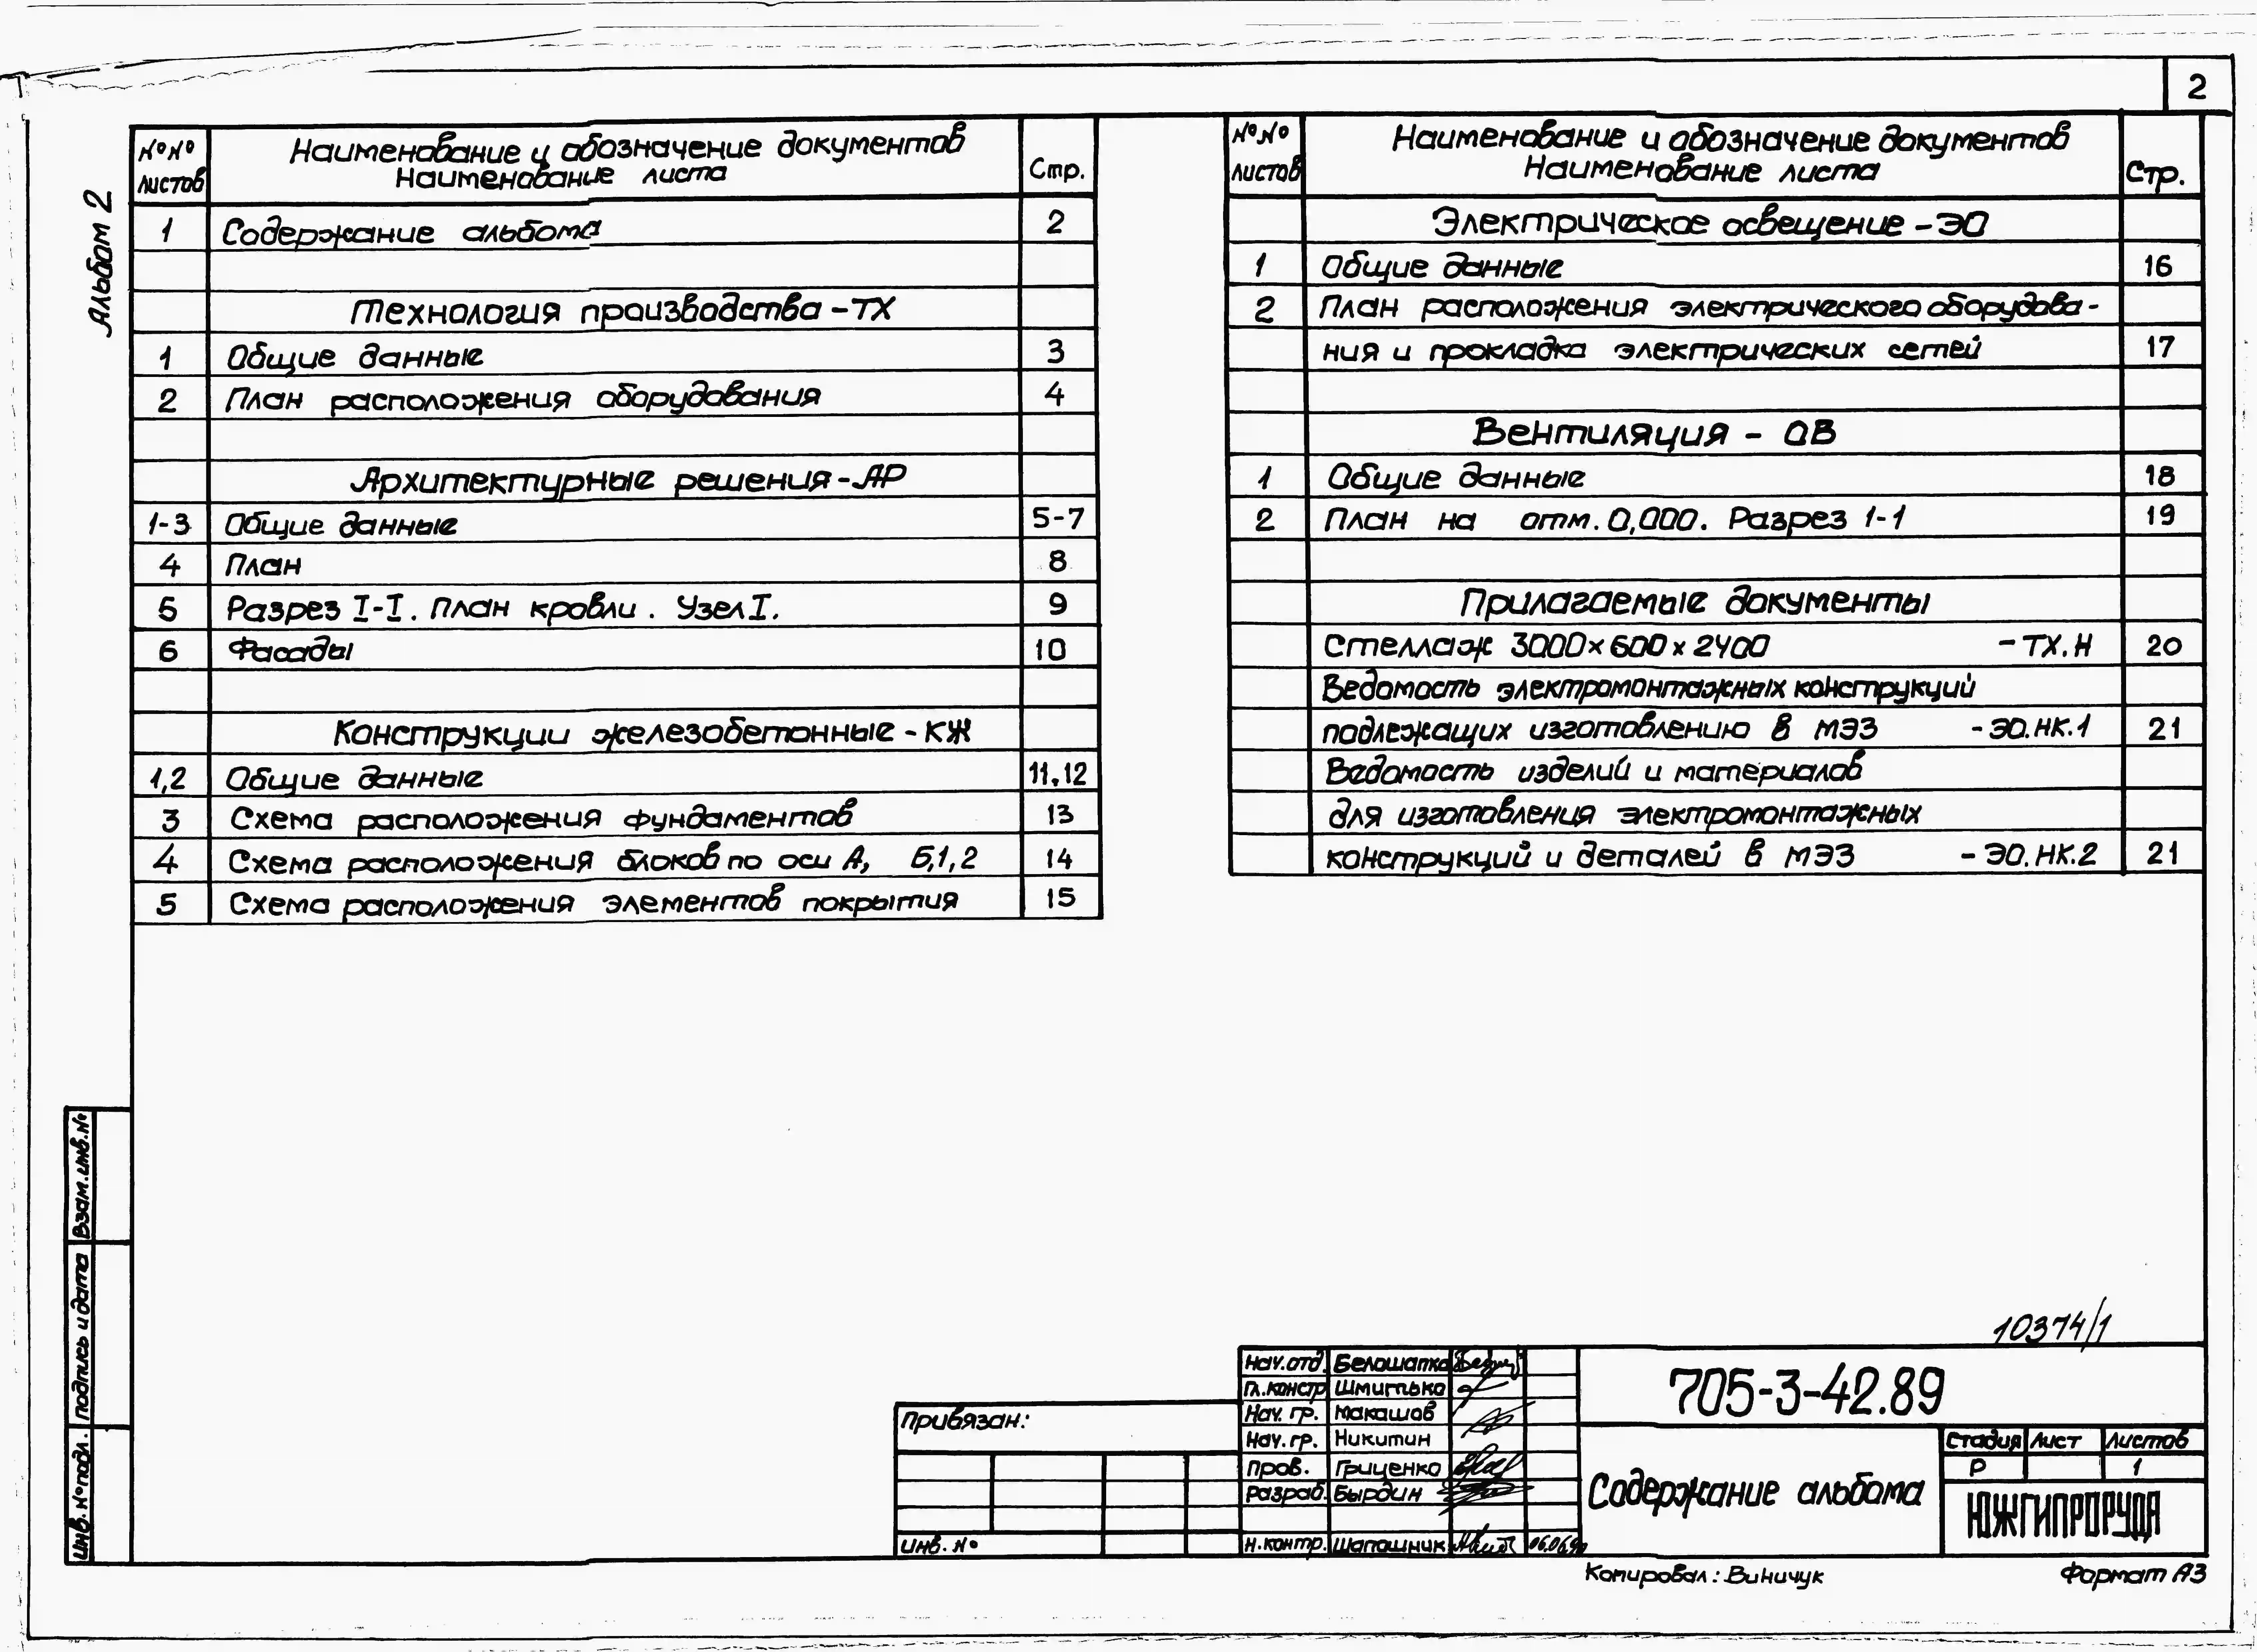 2
Альбом 2
№№ листов
Наименование и обозначение документов
Наименование листа
Стр.
1 Содержание альбома 2
Технология производства - ТХ
1 Общие данные 3
2 План расположения оборудования 4
Архитектурные решения - АР
1-3 Общие данные 5-7
4 План 8
5 Разрез I-I. План кровли. Узел I. 9
6 Фасады 10
Конструкции железобетонные - КЖ
1,2 Общие данные 11,12
3 Схема расположения фундаментов 13
4 Схема расположения блоков по оси А, Б,1,2 14
5 Схема расположения элементов покрытия 15
№№ листов
Наименование и обозначение документов
Наименование листа
Стр.
Электрическое освещение - ЭО
1 Общие данные 16
2 План расположения электрического оборудова-
ния и прокладка электрических сетей 17
Вентиляция - ОВ
1 Общие данные 18
2 План на отм. 0,000. Разрез 1-1 19
Прилагаемые документы
Стеллаж 3000×600×2400 - ТХ.Н 20
Ведомость электромонтажных конструкций
подлежащих изготовлению в МЭЗ - ЭО.НК.1 21
Ведомость изделий и материалов
для изготовления электромонтажных
конструкций и деталей в МЭЗ - ЭО.НК.2 21
Взам.инв.№
Подпись и дата
Инв. № подл.
10374/1
Привязан:
Инв. №
Нач.отд. Белошапка
Гл.констр Шмитько
Нач. гр. Макашов
Нач. гр. Никитин
Пров. Гриценко
Разраб. Бырдин
Н.контр. Шапошник
705-3-42.89
Содержание альбома
Стадия Лист Листов
Р 1
ЮЖГИПРОРУДА
Копировал: Виничук
Формат А3